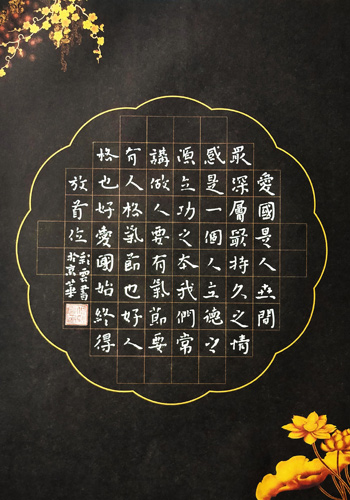 愛國是人世間
最深層最持久之情
感是一個人立德之
源立功之本我們常
講做人要有氣節要
有人格氣節也好人
格也好愛國始終得
放首位
彩雲書
於京華